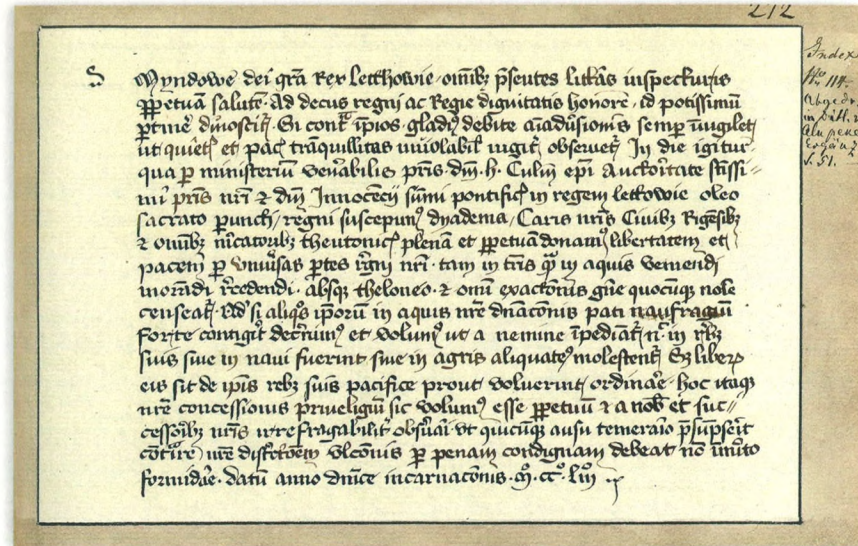 212
S Myndowe dei gra̅ Rex Letthowie · om̅ibꝫ p̅sentes litt̅as inspecturis
ꝑpetuā salutē · Ad decus regni ac Regie dignitatis honorē · id potissimū
ꝑtinē dinoscit̅ · Si cont̅ īpios · gladiꝰ debite aīaduersionis semꝑ īuigilet
ut quietꝭ et pacꝭ tranquillitas inuiolabilꝰ iugit̅ obseruet̅ In die igitur
qua ꝑ ministerium ven̅abilis pris · dni · h · Culm̅ epi Auctoritate sctissi=
mi pris nr̅i ⁊ dni Innocecii su̅mi pontificꝭ in regem lettowie oleo
sacrato ꝑuncti / regni suscepimꝰ dyadema / Caris nr̅is Ciuibꝫ Rigēsibꝫ
⁊ om̅ibꝫ m̅catoribꝫ theutonicꝭ plenam et ꝑpetuā donamꝰ libertatem et
pacem ꝑ vniu̅sas ꝑtes regni nr̅i · tam in tr̅is qͣ in aquis veniendi
morandi recedendi · absqꝫ theloneo · ⁊ om̅i exactionis gn̅e quocūqꝫ no̅ie
censeat̅ · Ad̅ si aliqͦs ip̅orum in aquis nr̅e dn̅aconis pati naufragiū
forte contigit̅ decreuimꝰ et volumꝰ ut a nemine īpediāt̅ nͨ in rebꝫ
suis siue in naui fuerint siue in agris aliquatenꝰ molestent̅ Sꝫ liberꝫ
eis sit de ip̅is rebꝫ suis pacifice prout voluerint ordinare · hoc itaqꝫ
nr̅e concessionis priuelegiū sic volumꝰ esse ꝑpetuū ⁊ a nob̅ et suc=
cessoribꝫ nr̅is irrefragabilit̅ obseruai vt quicūqꝫ ausu temerario p̅supserit
contͣire nr̅e districcōem vlcōnis ꝑ penam condignam debeat no̅ im̅ito
formidare · datū anno dn̅ice incarnacōnis · mͦ · ccͦ · Liii
Index
No 114.
Abgedr.
in
S. 51.